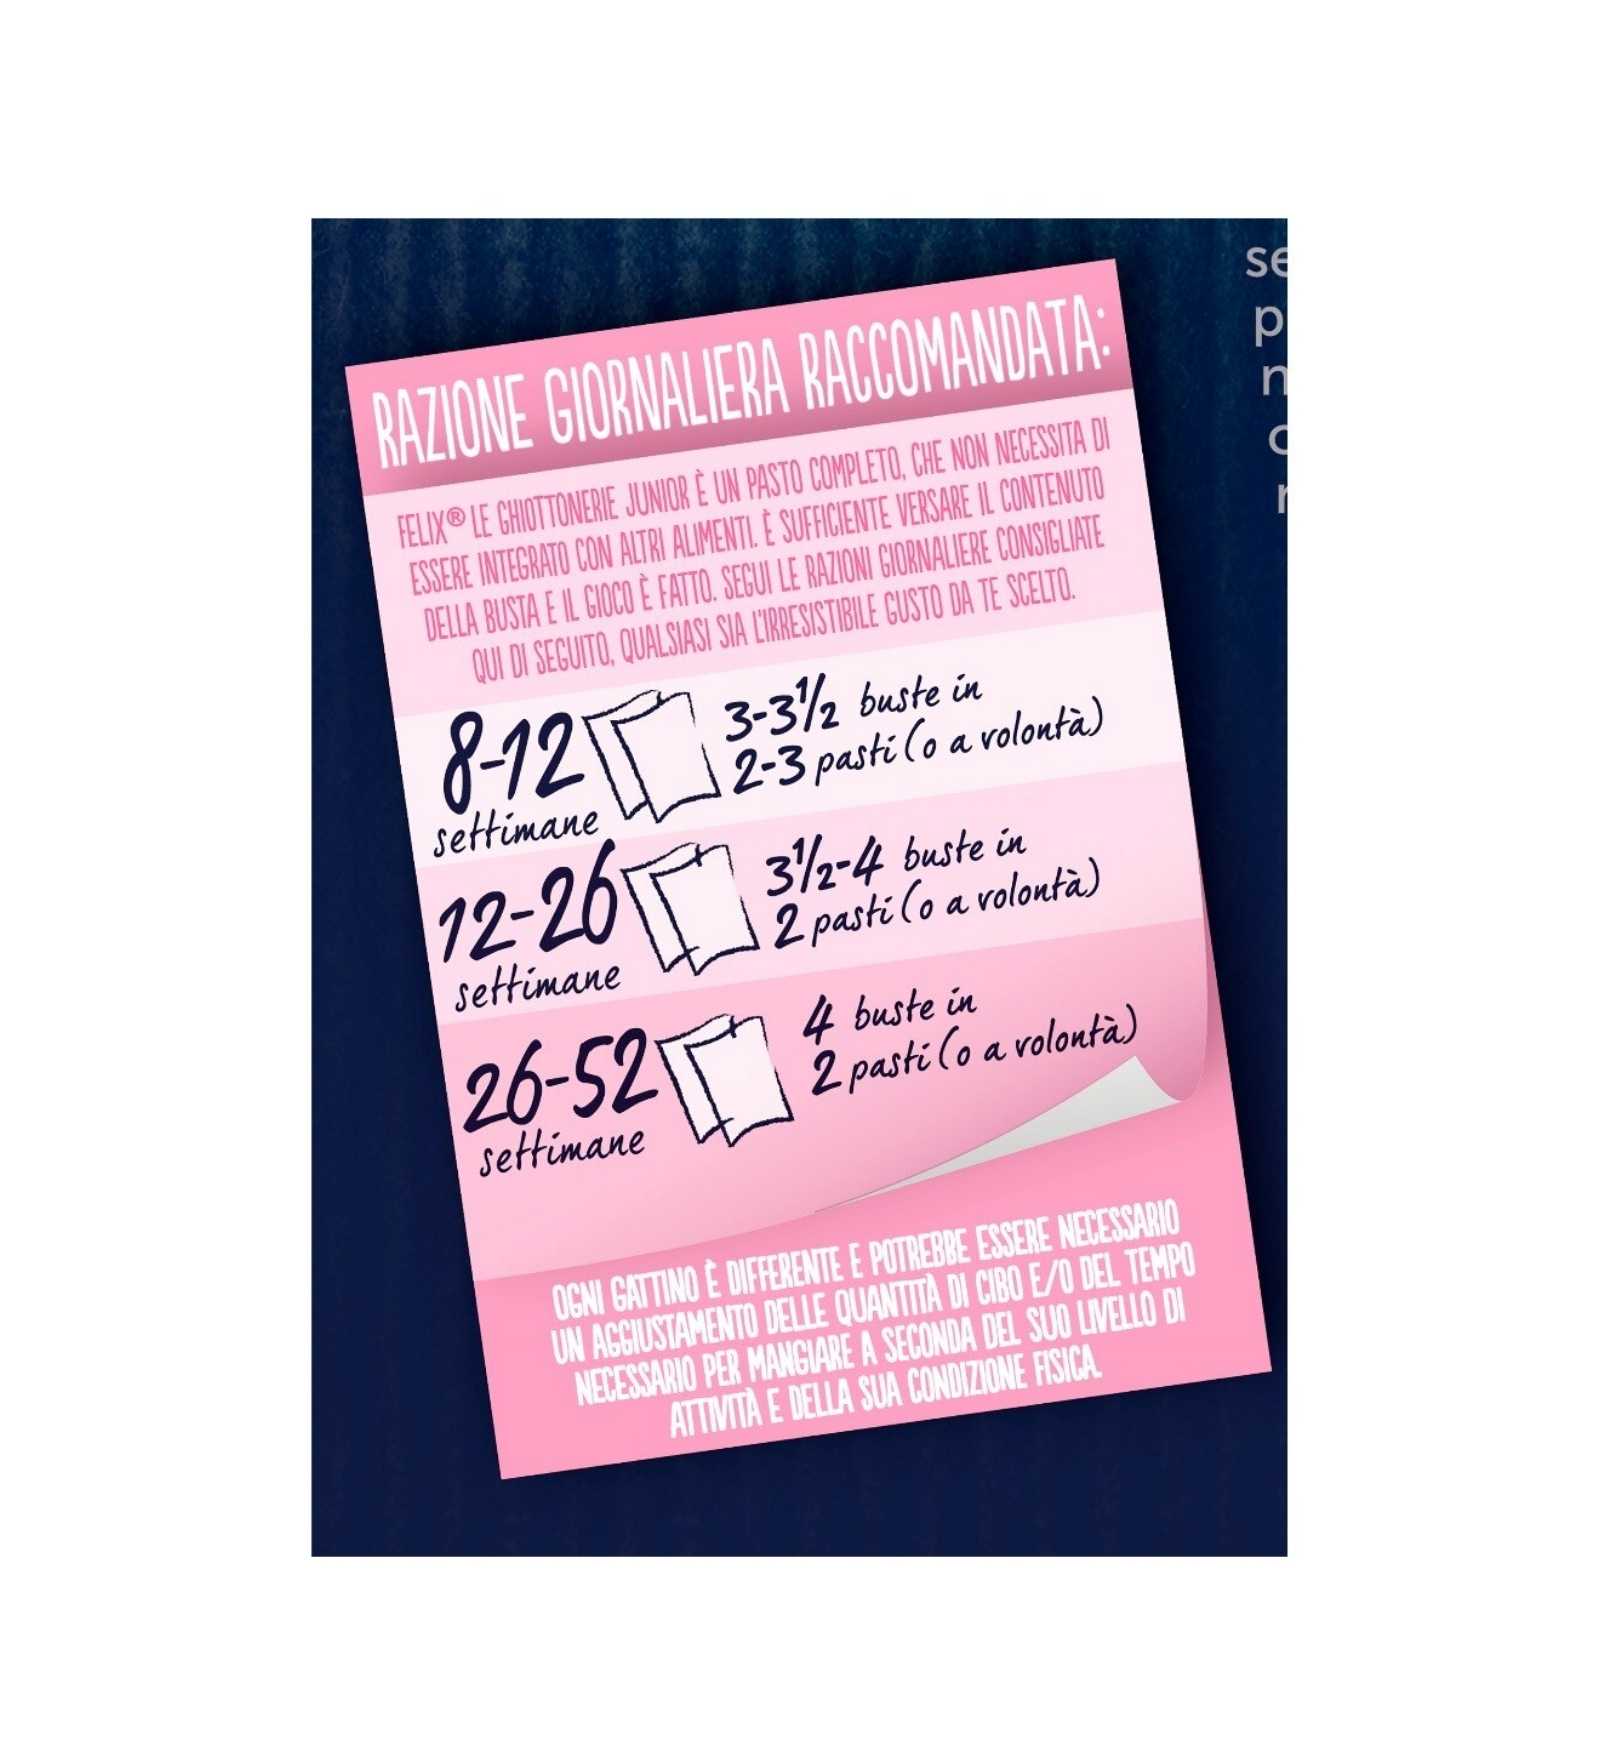 RAZIONE GIORNALIERA RACCOMANDATA:
FELIX® LE GHIOTTONERIE JUNIOR È UN PASTO COMPLETO, CHE NON NECESSITA DI
ESSERE INTEGRATO CON ALTRI ALIMENTI. È SUFFICIENTE VERSARE IL CONTENUTO
DELLA BUSTA E IL GIOCO È FATTO. SEGUI LE RAZIONI GIORNALIERE CONSIGLIATE
QUI DI SEGUITO, QUALSIASI SIA L'IRRESISTIBILE GUSTO DA TE SCELTO.
8-12
settimane
3-3½ buste in
2-3 pasti (o a volontà)
12-26
settimane
3½-4 buste in
2 pasti (o a volontà)
26-52
settimane
4 buste in
2 pasti (o a volontà)
OGNI GATTINO È DIFFERENTE E POTREBBE ESSERE NECESSARIO
UN AGGIUSTAMENTO DELLE QUANTITÀ DI CIBO E/O DEL TEMPO
NECESSARIO PER MANGIARE A SECONDA DEL SUO LIVELLO DI
ATTIVITÀ E DELLA SUA CONDIZIONE FISICA.